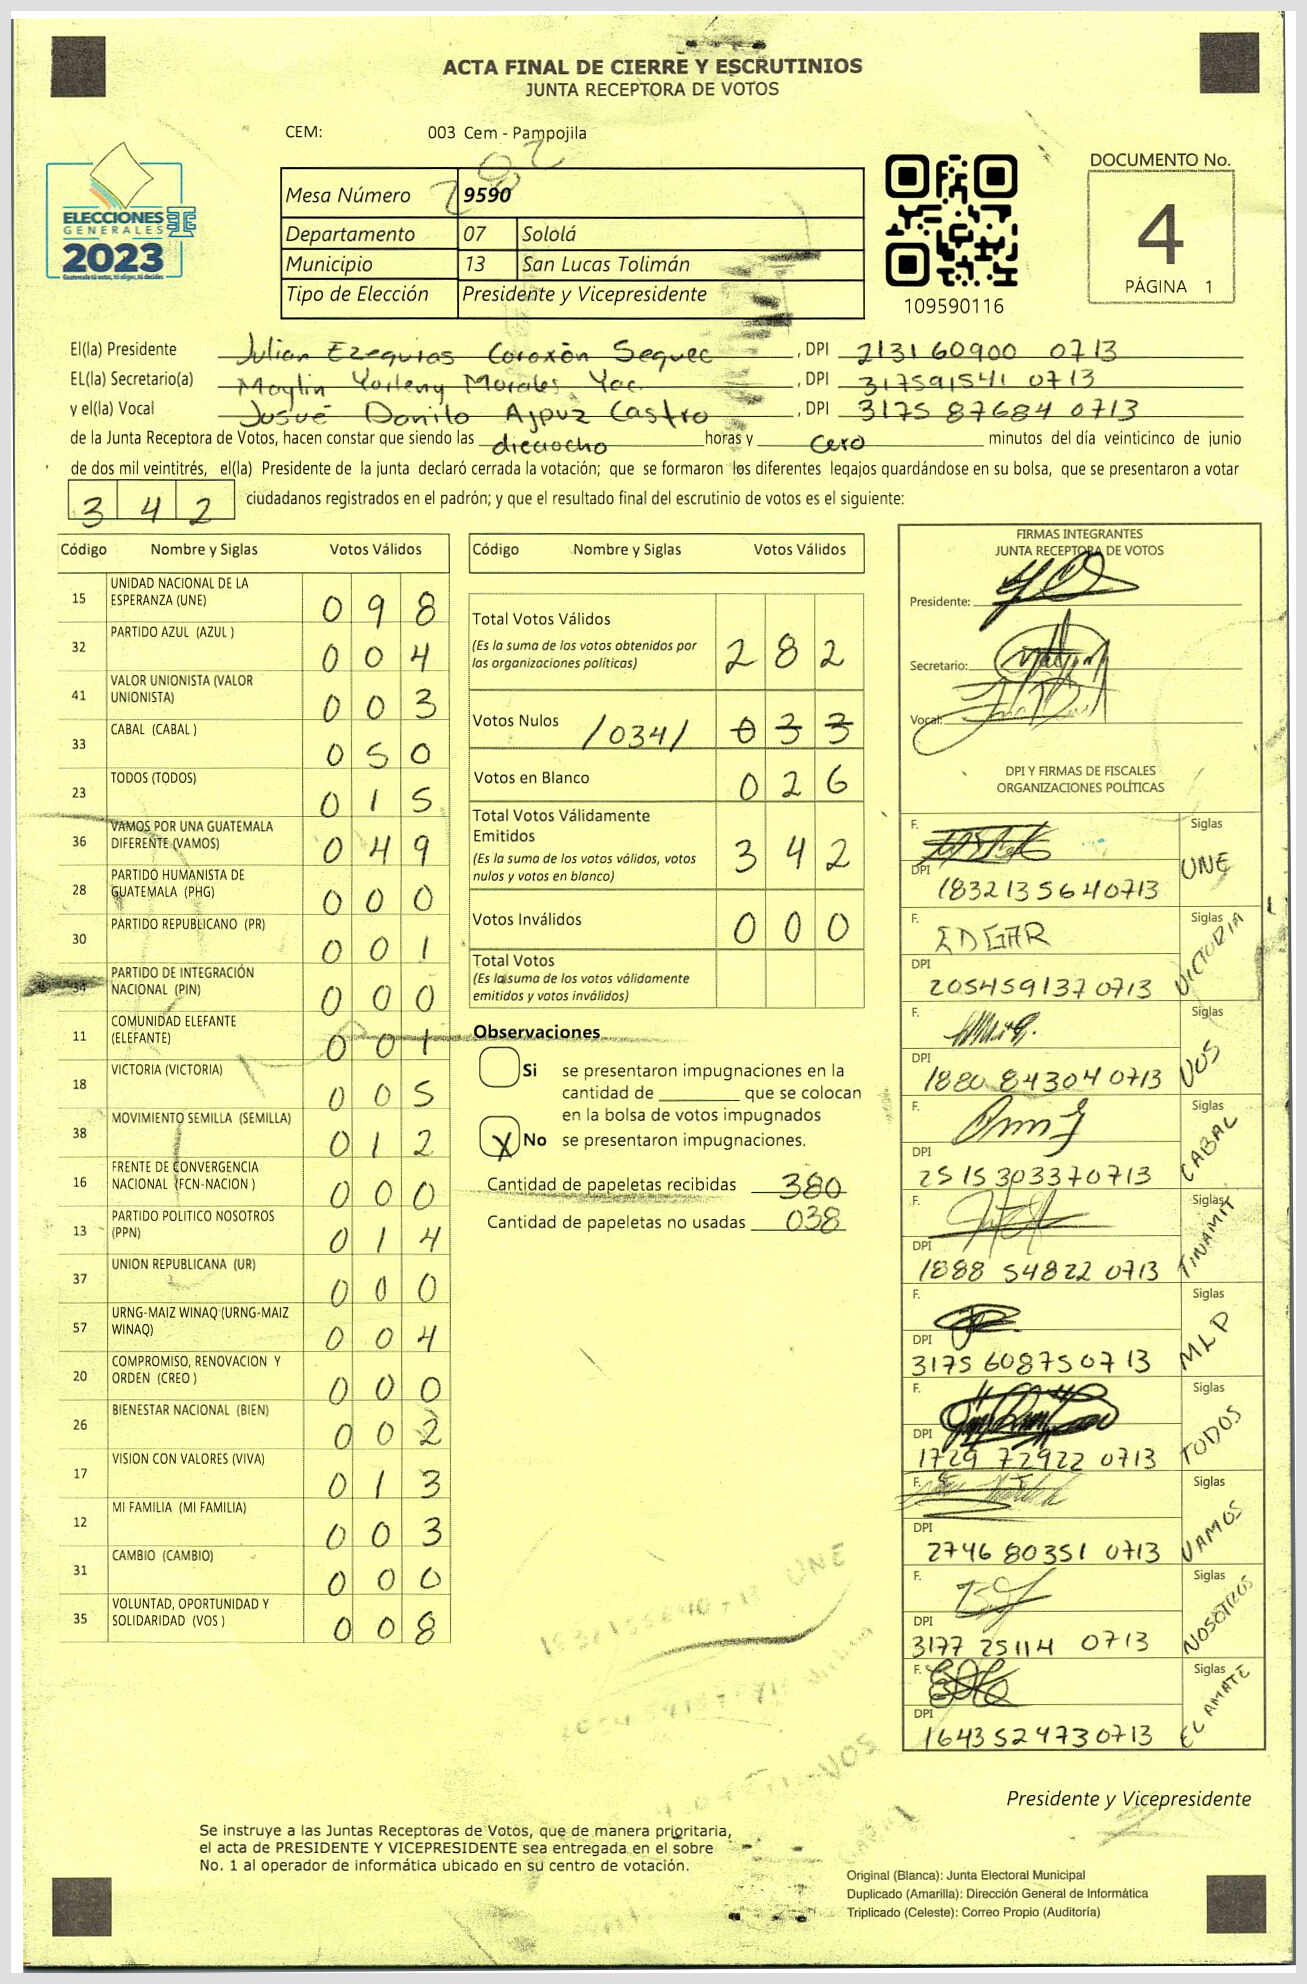 ACTA FINAL DE CIERRE Y ESCRUTINIOS
JUNTA RECEPTORA DE VOTOS
CEM: 003 Cem - Pampojila
282
ELECCIONES
GENERALES
2023
Mesa Número 9590
Departamento 07 Sololá
Municipio 13 San Lucas Tolimán
Tipo de Elección Presidente y Vicepresidente
109590116
DOCUMENTO No.
4
PÁGINA 1
El(la) Presidente Julian Ezequias Coroxón Sequec , DPI 2131 60900 0713
EL(la) Secretario(a) Maylin Yorleny Morales Yac , DPI 317591541 0713
y el(la) Vocal Josué Danilo Ajpuz Castro , DPI 3175 87684 0713
de la Junta Receptora de Votos, hacen constar que siendo las dieciocho horas y cero minutos del día veinticinco de junio
de dos mil veintitrés, el(la) Presidente de la junta declaró cerrada la votación; que se formaron los diferentes legajos quardándose en su bolsa, que se presentaron a votar
342 ciudadanos registrados en el padrón; y que el resultado final del escrutinio de votos es el siguiente:
Código Nombre y Siglas Votos Válidos
15 UNIDAD NACIONAL DE LA ESPERANZA (UNE) 098
32 PARTIDO AZUL (AZUL ) 004
41 VALOR UNIONISTA (VALOR UNIONISTA) 003
33 CABAL (CABAL ) 050
23 TODOS (TODOS) 015
36 VAMOS POR UNA GUATEMALA DIFERENTE (VAMOS) 049
28 PARTIDO HUMANISTA DE GUATEMALA (PHG) 000
30 PARTIDO REPUBLICANO (PR) 001
34 PARTIDO DE INTEGRACIÓN NACIONAL (PIN) 000
11 COMUNIDAD ELEFANTE (ELEFANTE) 001
18 VICTORIA (VICTORIA) 005
38 MOVIMIENTO SEMILLA (SEMILLA) 012
16 FRENTE DE CONVERGENCIA NACIONAL (FCN-NACION ) 000
13 PARTIDO POLITICO NOSOTROS (PPN) 014
37 UNION REPUBLICANA (UR) 000
57 URNG-MAIZ WINAQ (URNG-MAIZ WINAQ) 004
20 COMPROMISO, RENOVACION Y ORDEN (CREO ) 000
26 BIENESTAR NACIONAL (BIEN) 002
17 VISION CON VALORES (VIVA) 013
12 MI FAMILIA (MI FAMILIA) 003
31 CAMBIO (CAMBIO) 000
35 VOLUNTAD, OPORTUNIDAD Y SOLIDARIDAD (VOS ) 008
Código Nombre y Siglas Votos Válidos
Total Votos Válidos 282
(Es la suma de los votos obtenidos por
las organizaciones políticas)
Votos Nulos /034/ 033
Votos en Blanco 026
Total Votos Válidamente
Emitidos 342
(Es la suma de los votos válidos, votos
nulos y votos en blanco)
Votos Inválidos 000
Total Votos
(Es la suma de los votos válidamente
emitidos y votos inválidos)
Observaciones
Si se presentaron impugnaciones en la
cantidad de ________ que se colocan
en la bolsa de votos impugnados
X No se presentaron impugnaciones.
Cantidad de papeletas recibidas 380
Cantidad de papeletas no usadas 038
FIRMAS INTEGRANTES
JUNTA RECEPTORA DE VOTOS
Presidente:
Secretario:
Vocal:
DPI Y FIRMAS DE FISCALES
ORGANIZACIONES POLÍTICAS
F. Siglas UNE
DPI 1832135640713
F. EDGAR Siglas VICTORIA
DPI 2054591370713
F. Siglas VOS
DPI 1880 84304 0713
F. Siglas CABAL
DPI 2515303370713
F. Siglas TINAMIT
DPI 1888 54822 0713
F. Siglas MLP
DPI 3175 60875 0713
F. Siglas TODOS
DPI 1729 72922 0713
F. Siglas VAMOS
DPI 2746 80351 0713
F. Siglas NOSOTROS
DPI 3177 25114 0713
F. Siglas EL AMATE
DPI 1643524730713
UNE
VOS
Presidente y Vicepresidente
Se instruye a las Juntas Receptoras de Votos, que de manera prioritaria,
el acta de PRESIDENTE Y VICEPRESIDENTE sea entregada en el sobre
No. 1 al operador de informática ubicado en su centro de votación.
Original (Blanca): Junta Electoral Municipal
Duplicado (Amarilla): Dirección General de Informática
Triplicado (Celeste): Correo Propio (Auditoría)